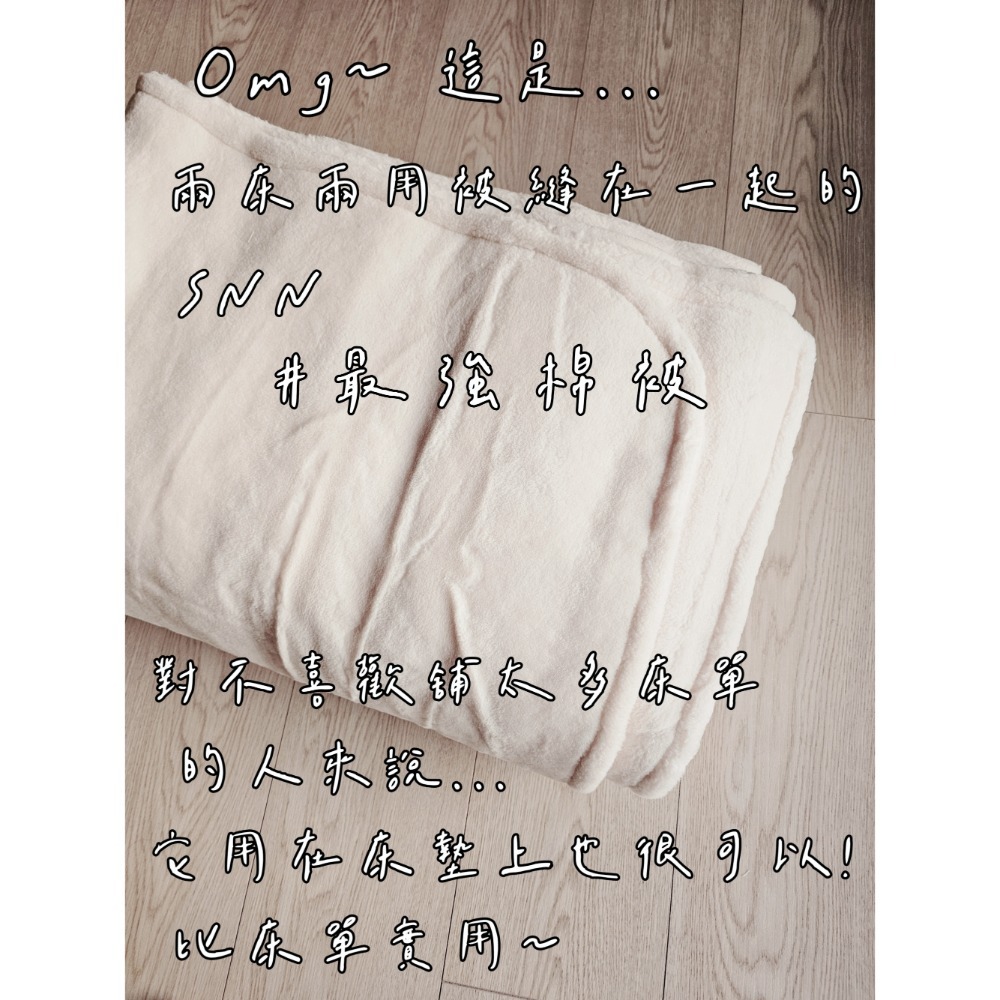 Omg~ 這是...
兩床兩用被縫在一起的
SNN
#最強棉被
對不喜歡舖太多床單
的人來說...
它用在床墊上也很可以!
比床單實用~